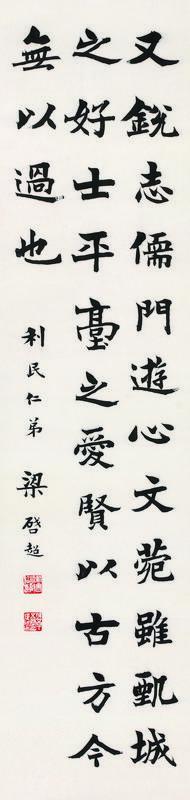 又銳志儒門遊心文菀雖甄城
之好士平臺之愛賢以古方今
無以過也
利民仁弟 梁啓超